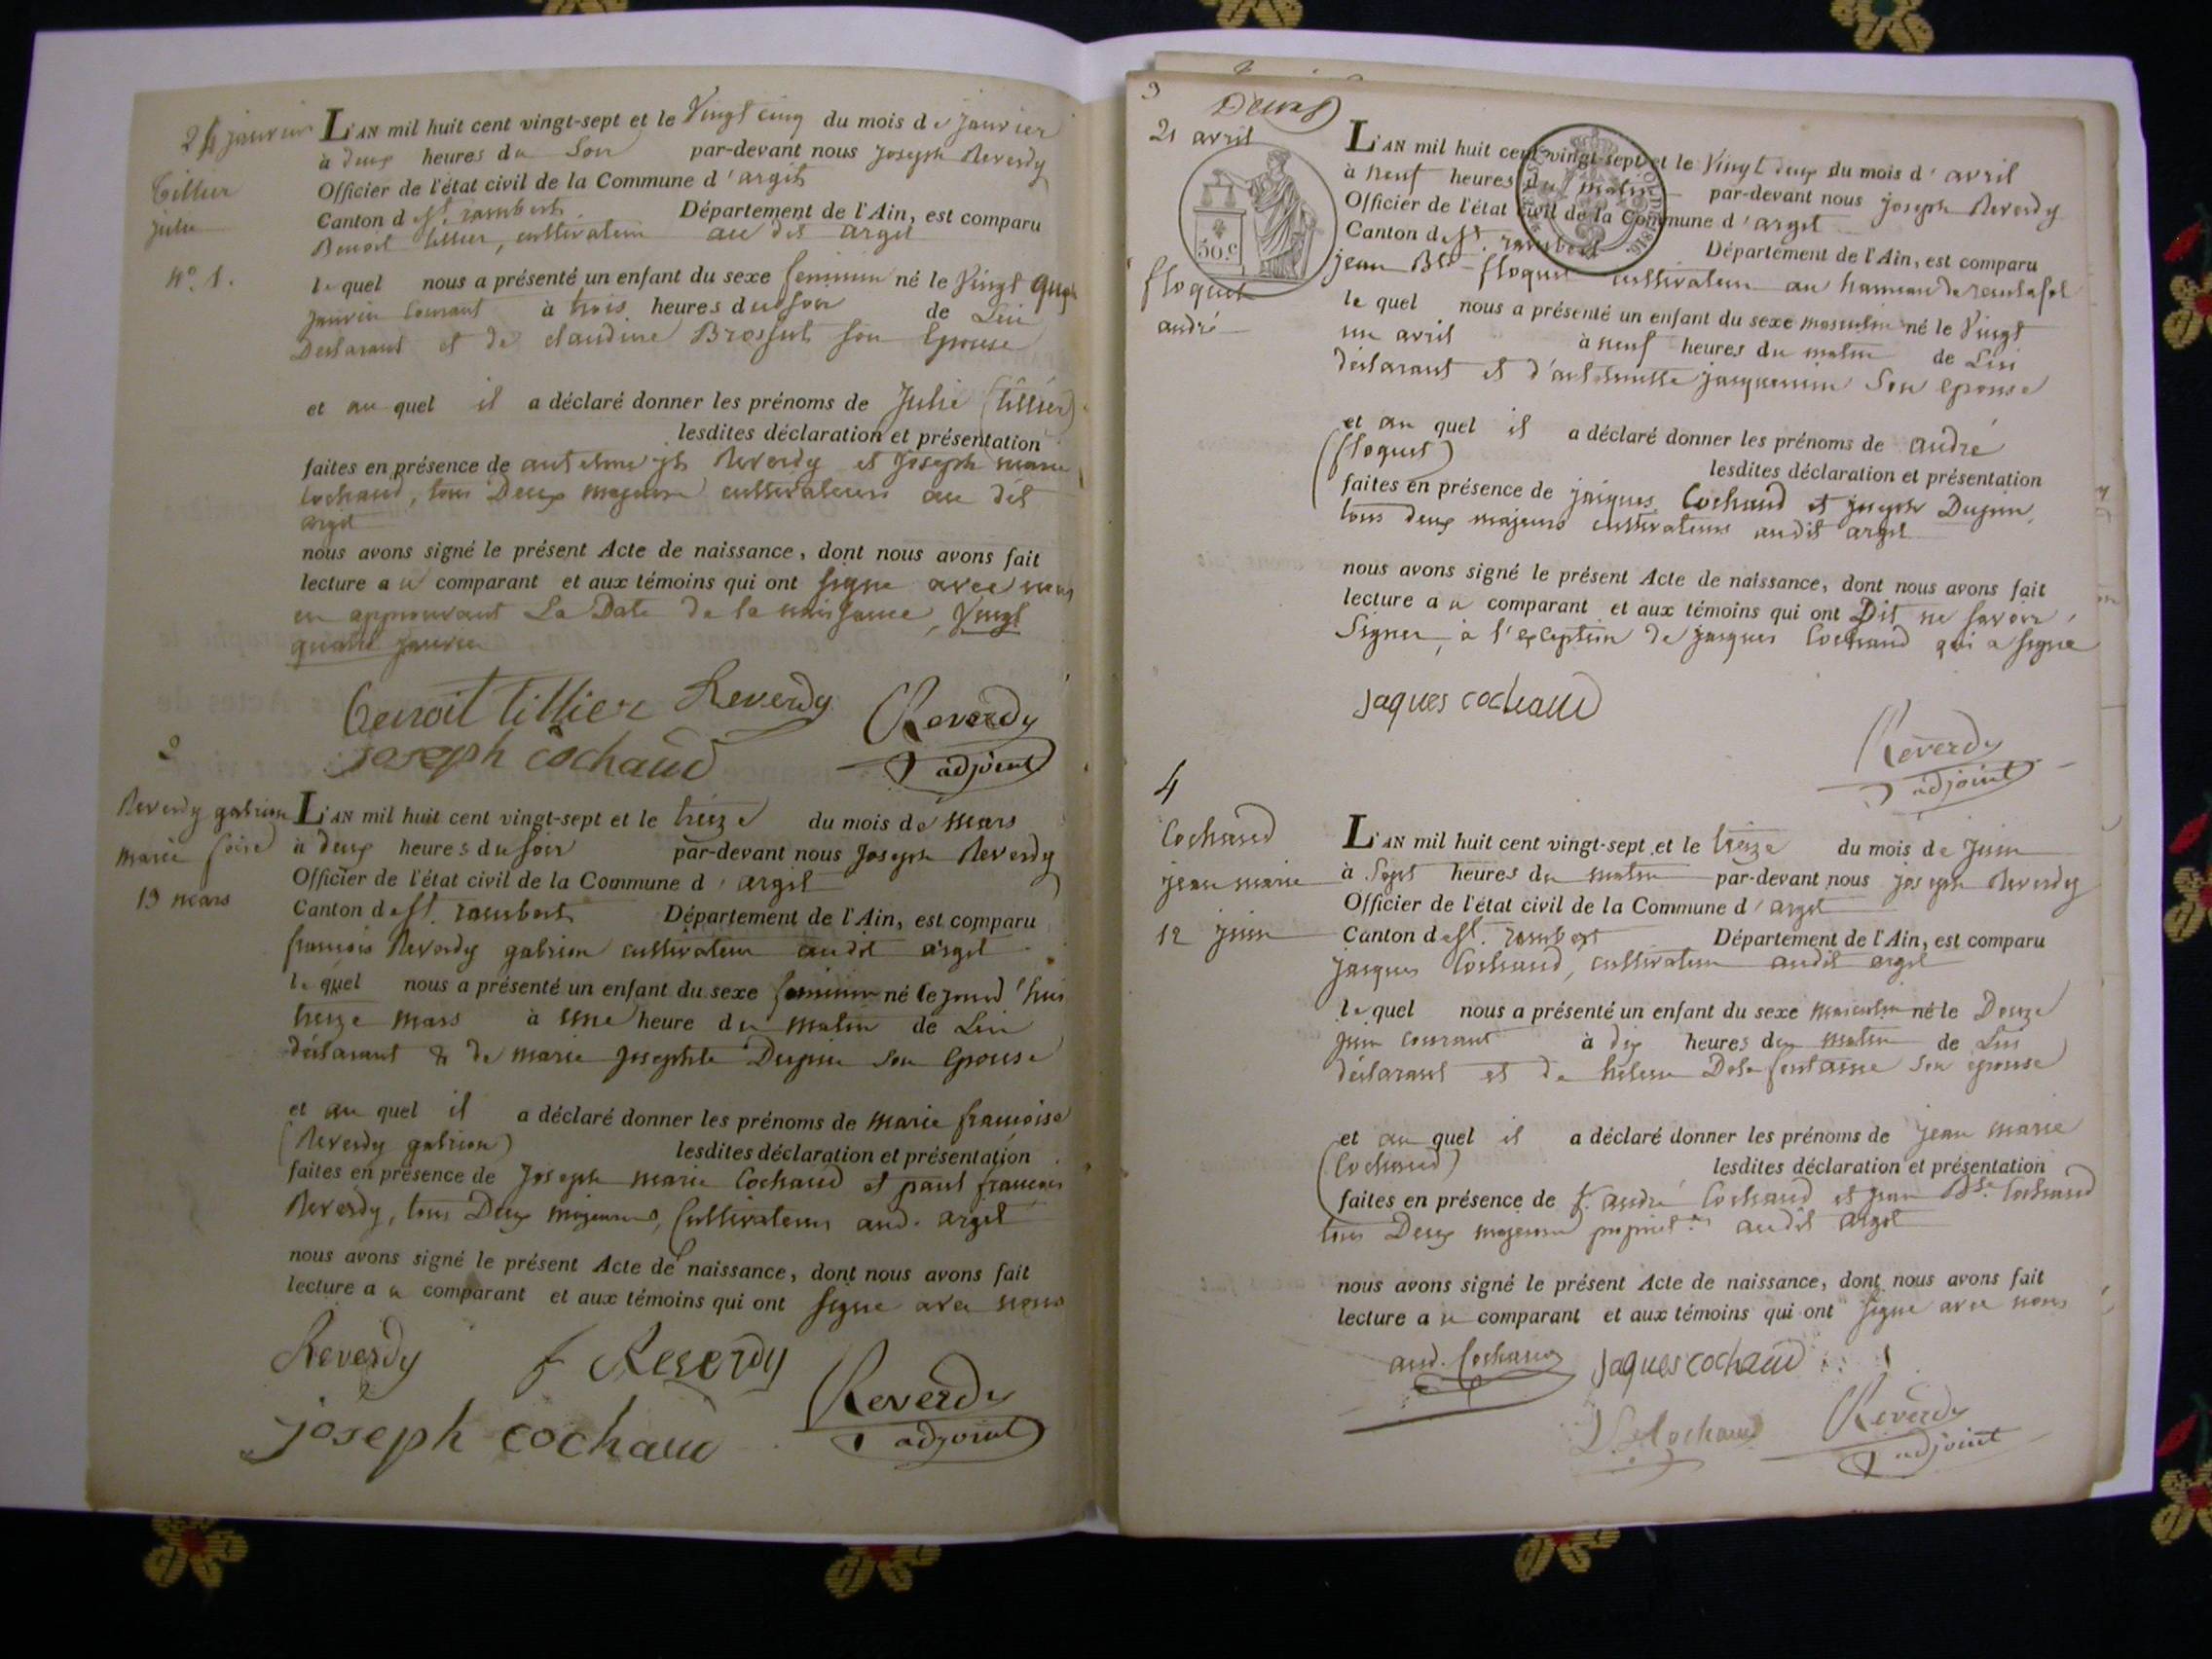 24 janvier
Tillier
julie
N° 1.
L'AN mil huit cent vingt-sept et le Vingt cinq du mois de janvier
à deux heures du Soir par-devant nous joseph Reverdy
Officier de l'état civil de la Commune d'argit
Canton de St. rambert Département de l'Ain, est comparu
Benoit tillier, cultivateur au dit argit
lequel nous a présenté un enfant du sexe feminin né le Vingt quat
janvier Courant à trois heures du soir de Lui
Déclarant et de claudine Brossut son Epouse
et au quel il a déclaré donner les prénoms de Julie (tillier)
lesdites déclaration et présentation
faites en présence de antelme jh Reverdy et Joseph marie
Cochaud, tous Deux majeurs cultivateurs au dit
argit
nous avons signé le présent Acte de naissance, dont nous avons fait
lecture au comparant et aux témoins qui ont signé avec nous
en approuvant La Date de la naissance, Vingt
quatre janvier
Benoit tillier Reverdy Reverdy
joseph cochaud adjoint
2
Reverdy gabrion
marie
13 mars
L'AN mil huit cent vingt-sept et le treize du mois de Mars
à deux heures du soir par-devant nous Joseph Reverdy
Officier de l'état civil de la Commune d'argit
Canton de St. rambert Département de l'Ain, est comparu
francois Reverdy gabrion cultivateur audit argit
lequel nous a présenté un enfant du sexe feminin né le jourd'hui
treize mars à une heure du matin de Lui
déclarant & de marie Josephte Dupin son Epouse
et au quel il a déclaré donner les prénoms de Marie francoise
(Reverdy gabrion) lesdites déclaration et présentation
faites en présence de Joseph marie Cochaud et paul francois
Reverdy, tous Deux majeurs, Cultivateurs aud. argit
nous avons signé le présent Acte de naissance, dont nous avons fait
lecture au comparant et aux témoins qui ont signé avec nous
Reverdy f Reverdy Reverdy
joseph cochaud adjoint
3
21 avril
50.c
1816
floquet
andré
L'AN mil huit cent vingt-sept et le Vingt deux du mois d'avril
à neuf heures du matin par-devant nous joseph Reverdy
Officier de l'état civil de la Commune d'argit
Canton de St. rambert Département de l'Ain, est comparu
jean Bte floquet cultivateur au hameau de
lequel nous a présenté un enfant du sexe masculin né le Vingt
un avril à neuf heures du matin de Lui
déclarant et d'anthelmette jacquemin Son epouse
et au quel il a déclaré donner les prénoms de andré
(floquet) lesdites déclaration et présentation
faites en présence de jacques Cochaud et joseph Dupin,
tous deux majeurs cultivateurs audit argit
nous avons signé le présent Acte de naissance, dont nous avons fait
lecture au comparant et aux témoins qui ont Dit ne savoir
Signer, à l'exception de jacques Cochaud qui a signé
jaques cochaud
Reverdy
adjoint
4
Cochaud
jean marie
12 juin
L'AN mil huit cent vingt-sept et le treize du mois de Juin
à Sept heures du matin par-devant nous joseph Reverdy
Officier de l'état civil de la Commune d'argit
Canton de St. rambert Département de l'Ain, est comparu
Jacques Cochaud, cultivateur audit argit
lequel nous a présenté un enfant du sexe masculin né le Douze
juin courant à dix heures du matin de Lui
déclarant et de helene Delafontaine Son epouse
et au quel il a déclaré donner les prénoms de jean marie
(Cochaud) lesdites déclaration et présentation
faites en présence de andré Cochaud et jean Bte. Cochaud
tous Deux majeurs propriet.res audit argit
nous avons signé le présent Acte de naissance, dont nous avons fait
lecture au comparant et aux témoins qui ont signé avec nous
and. Cochaud jaques cochaud
Cochaud Reverdy
adjoint